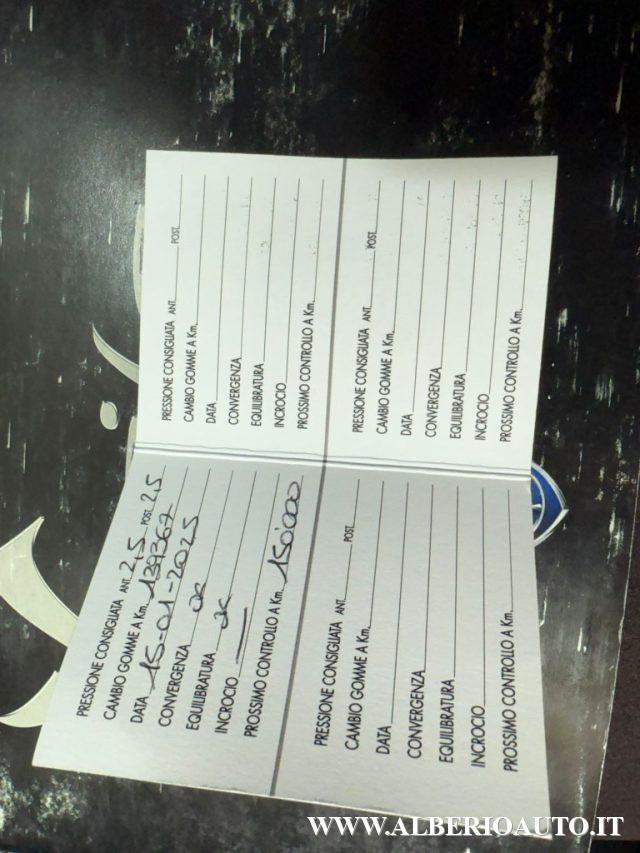 PRESSIONE CONSIGLIATA ANT. 2,5 POST. 2,5
CAMBIO GOMME A Km. 139367
DATA 15-01-2025
CONVERGENZA ok
EQUILIBRATURA ok
INCROCIO —
PROSSIMO CONTROLLO A Km. 150'000
PRESSIONE CONSIGLIATA ANT. POST.
CAMBIO GOMME A Km.
DATA
CONVERGENZA
EQUILIBRATURA
INCROCIO
PROSSIMO CONTROLLO A Km.
PRESSIONE CONSIGLIATA ANT. POST.
CAMBIO GOMME A Km.
DATA
CONVERGENZA
EQUILIBRATURA
INCROCIO
PROSSIMO CONTROLLO A Km.
PRESSIONE CONSIGLIATA ANT. POST.
CAMBIO GOMME A Km.
DATA
CONVERGENZA
EQUILIBRATURA
INCROCIO
PROSSIMO CONTROLLO A Km.
WWW.ALBERIOAUTO.IT